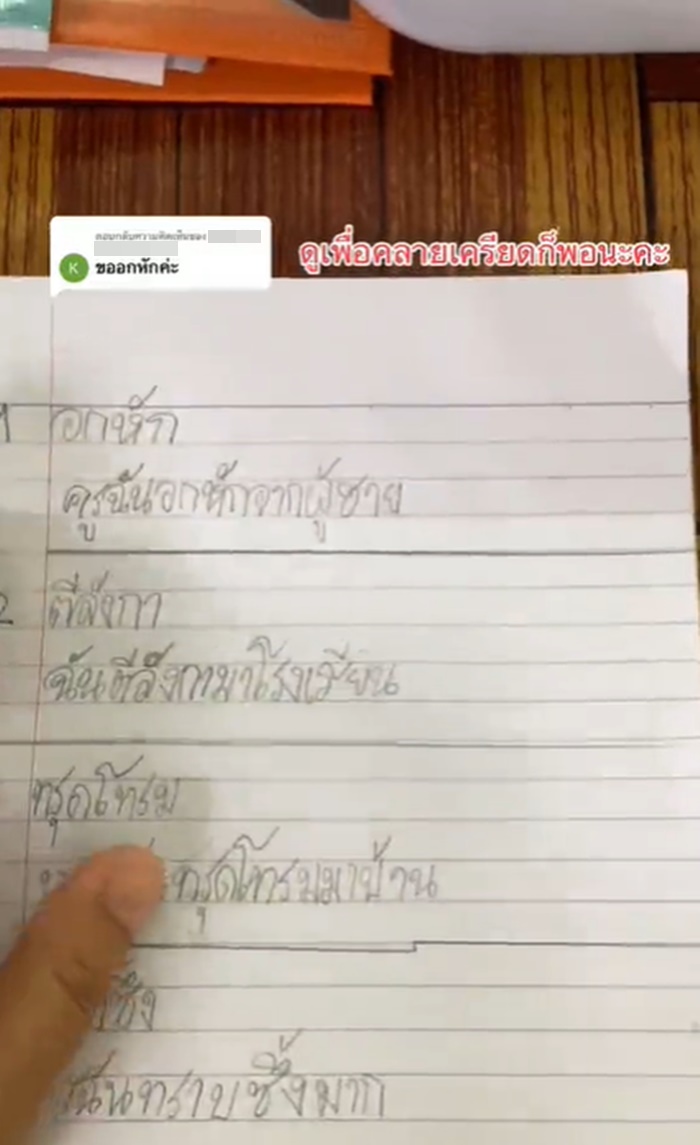 ตอบกลับความคิดเห็นของ
K ขออกหักค่ะ
ดูเพื่อคลายเครียดก็พอนะคะ
อกหัก
ครูฉันอกหักจากผู้ชาย
2 ตีลังกา
ฉันตีลังกามาโรงเรียน
ทรุดโทรม
ทรุดโทรมมาบ้าน
ซึ้ง
ฉันทราบซึ้งมาก